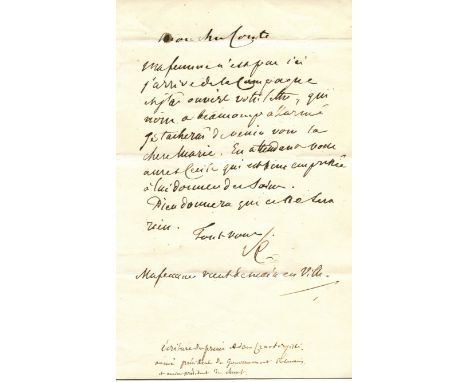 Mon cher Comte
Ma femme n'est pas ici
j'arrive de la Campagne
et j'ai ouvert votre lettre, qui
nous a beaucoup allarmé
Je tacherai de venir voir la
chere Marie. En attendant vous
aurez Cecile qui est bien empressée
à lui donner des Soins.
Dieu donnera que ce ne Sera
rien.
Tout vous
Ma femme vient de                en Ville
Ecriture du prince Adam Czartoryski
ancien président du Gouvernement Polonais,
et ancien président du Sénat.